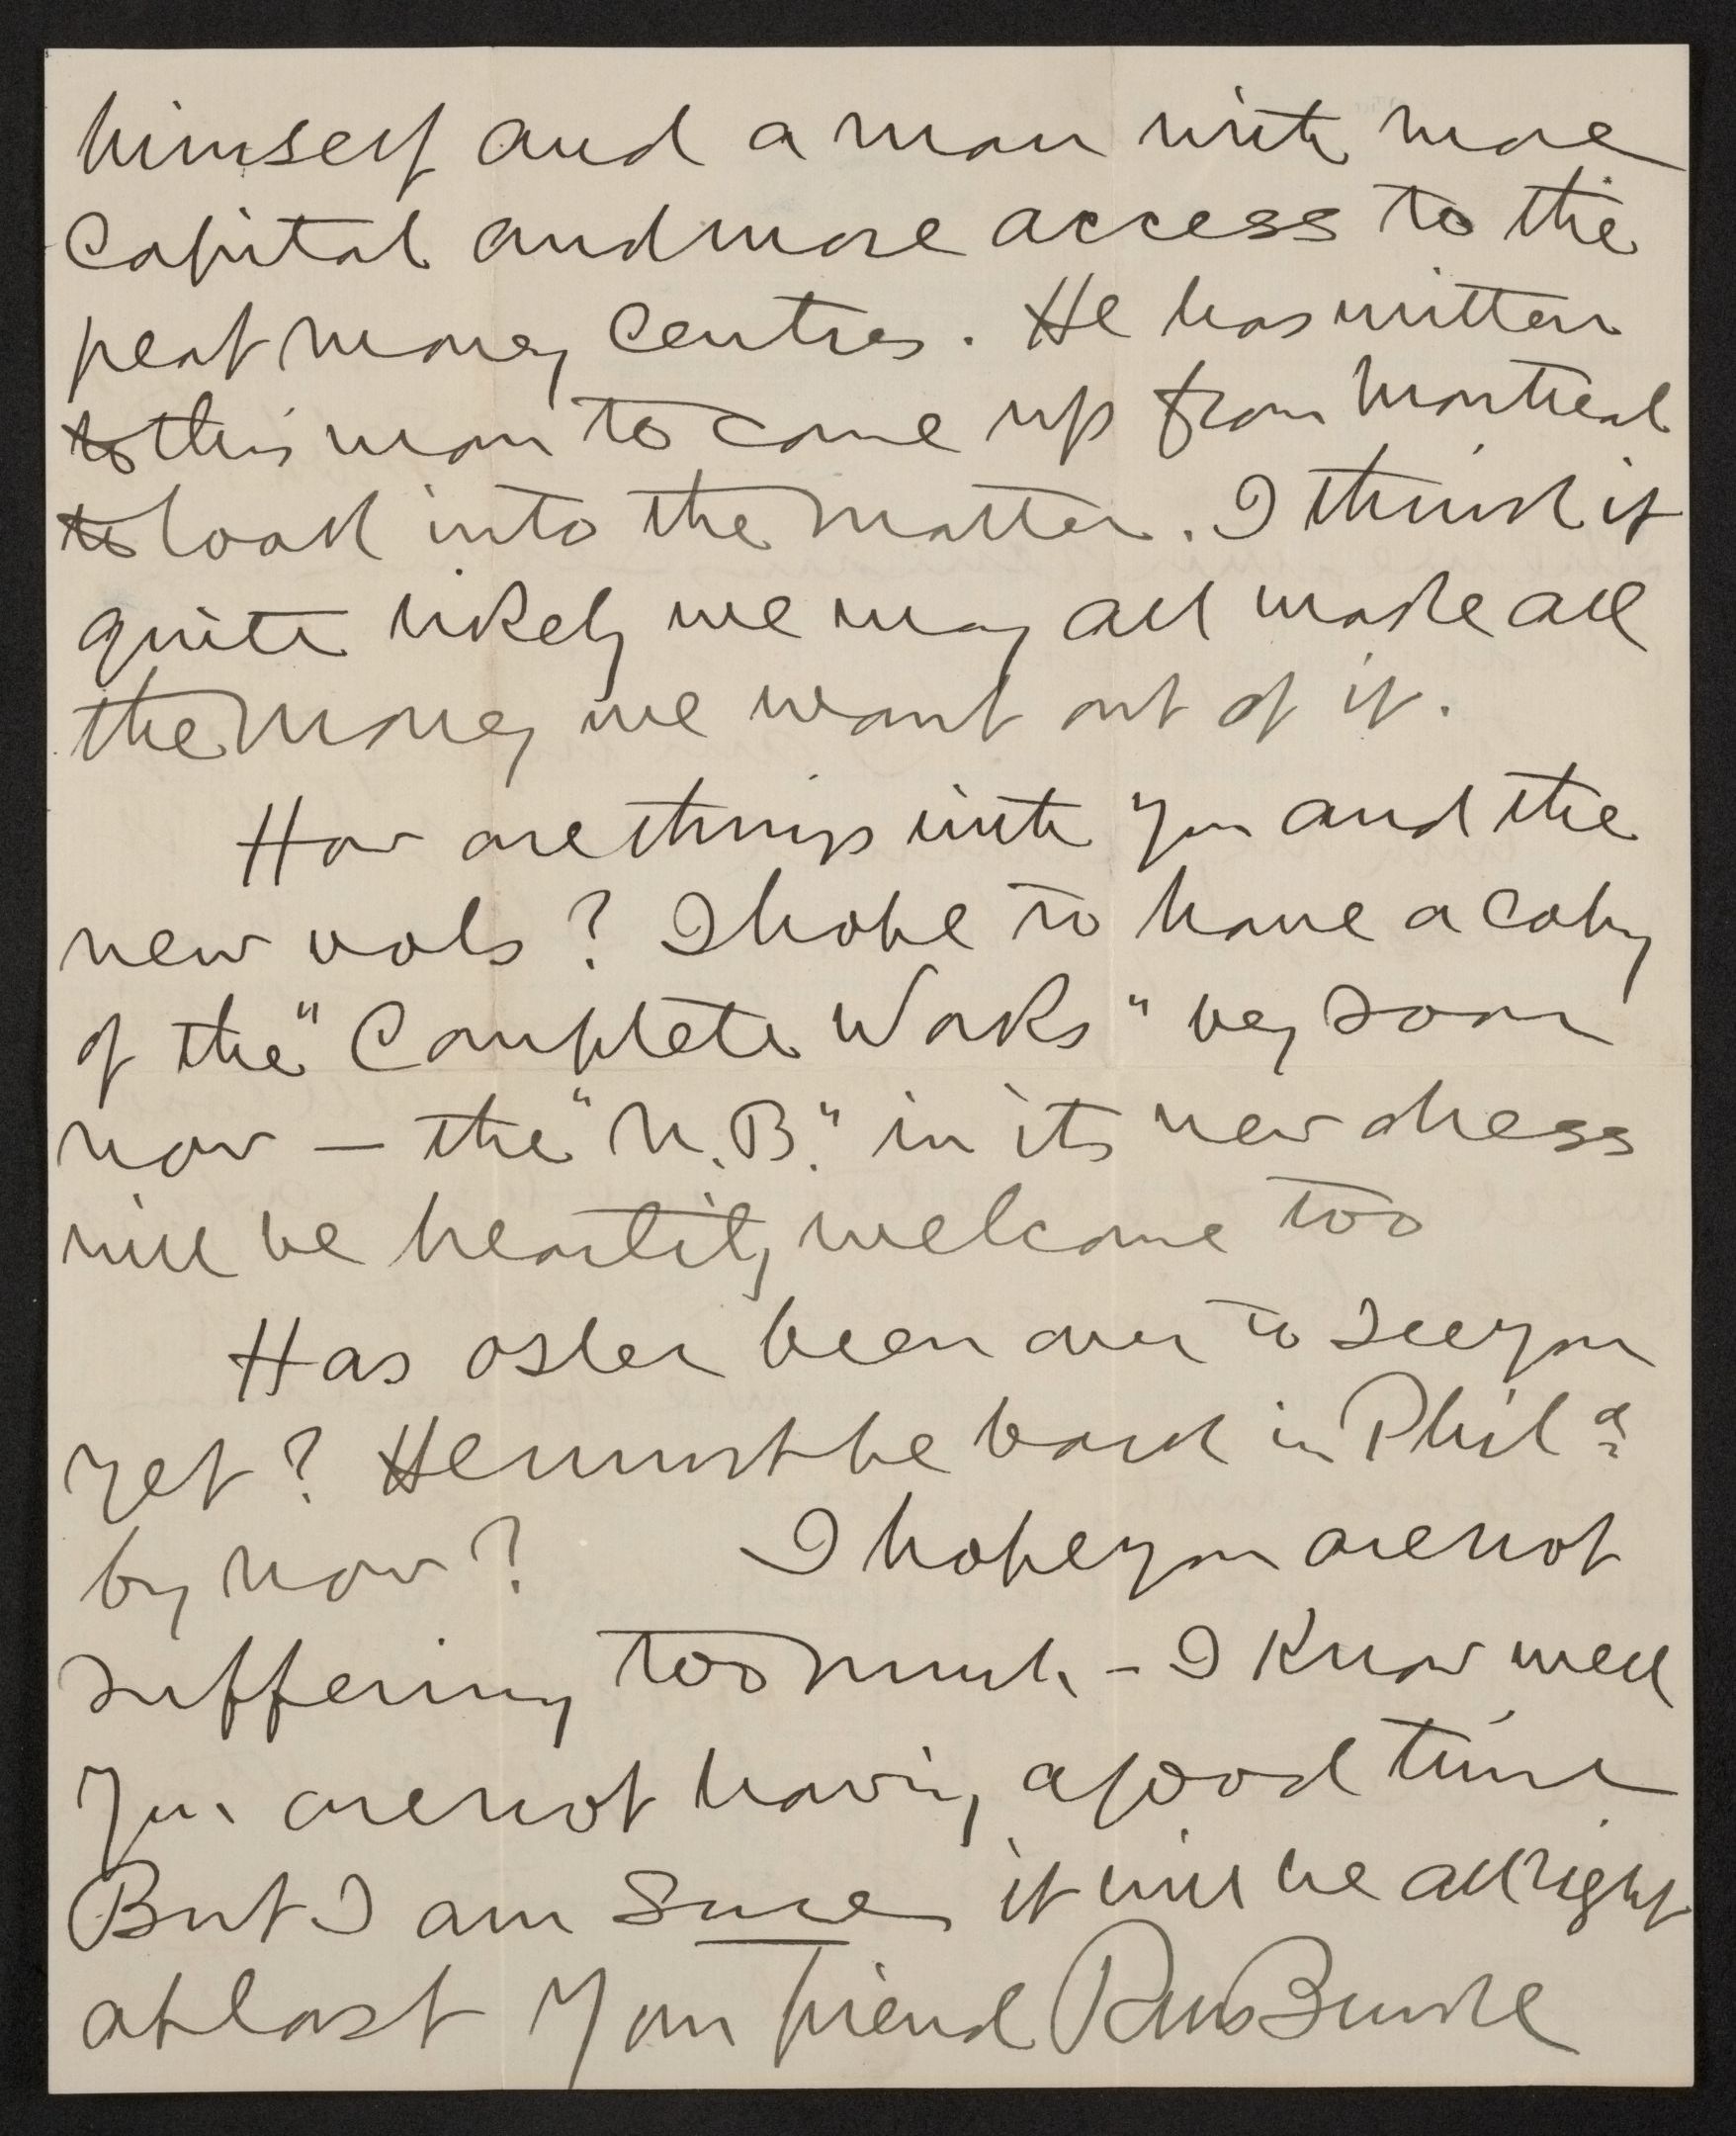 himself and a man with more
capital and more access to the
great money centres. He has written
to this man to come up from Montreal
to look into the matter. I think it
quite likely we may all make all
the money we want out of it.
How are things with you and the
new vols? I hope to have a copy
of the "Complete Works" very soon
now — the "N.B." in its new dress
will be heartily welcome too
Has Osler been over to see you
yet? He must be back in Phila
by now? I hope you are not
suffering too much – I know well
you are not having a good time
But I am sure it will be all right
at last Your friend RM Bucke